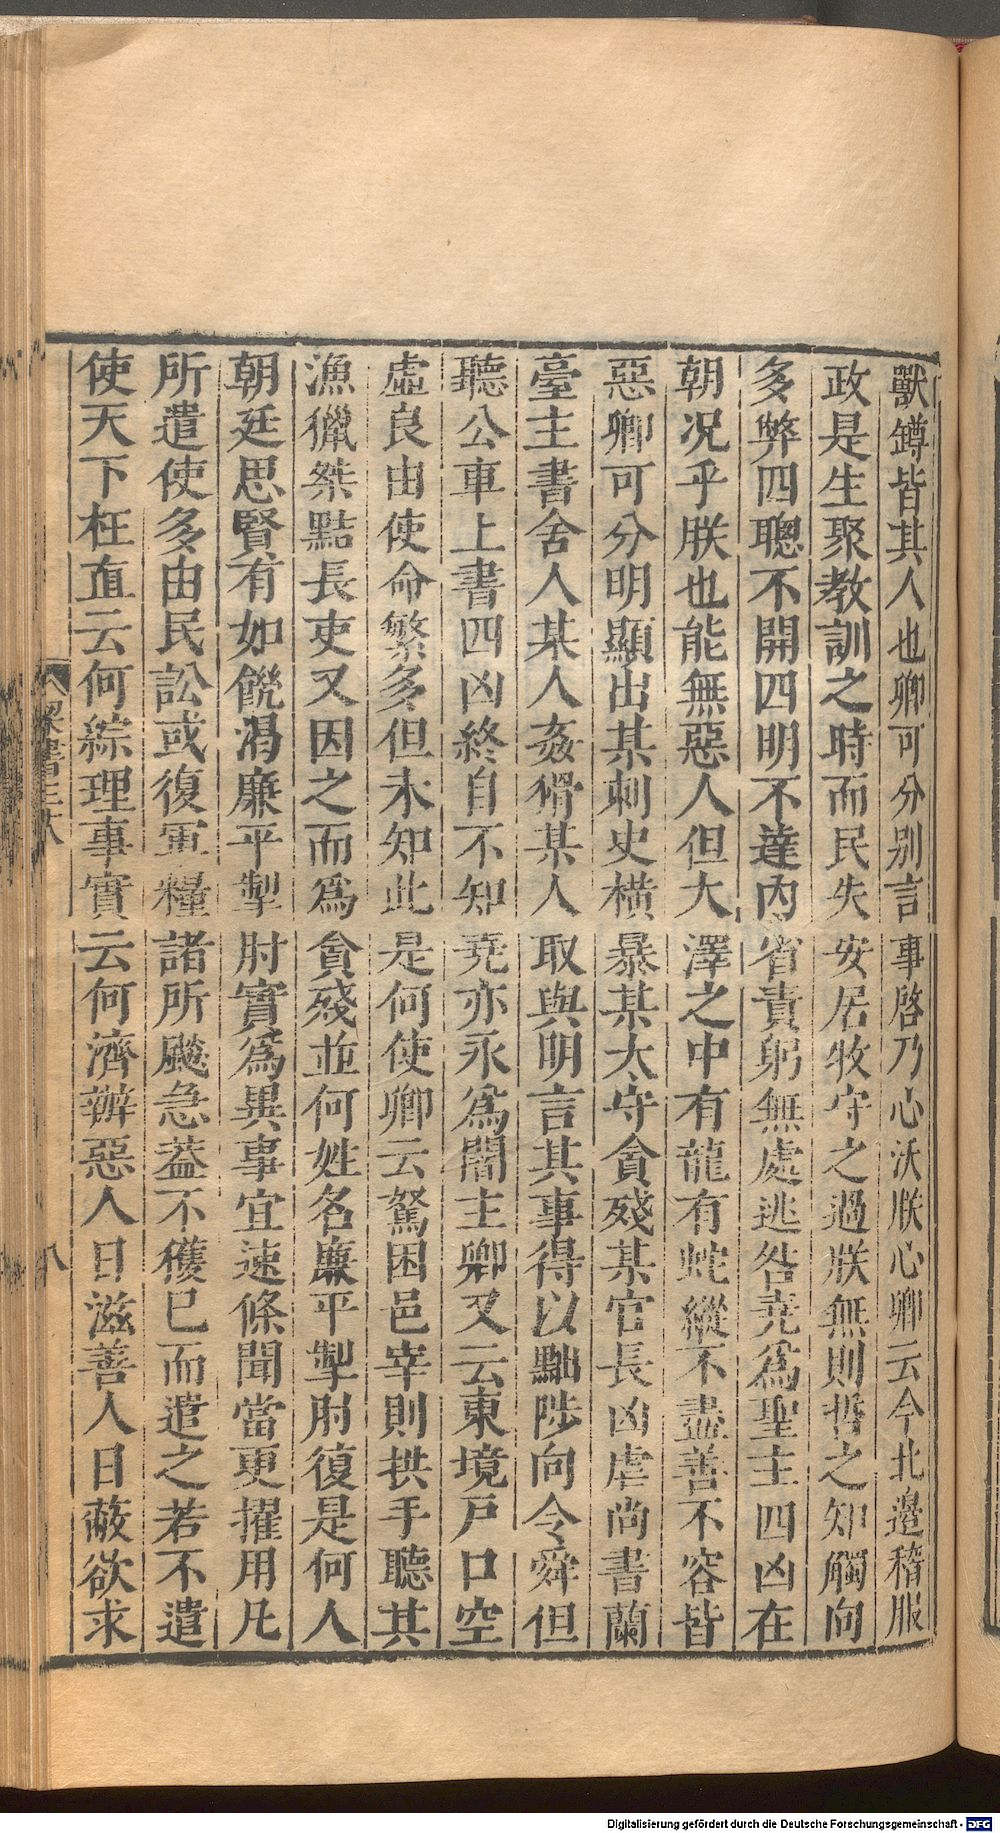 獸鐏皆其人也卿可分別言事啓乃心沃朕心卿云今北邊稽服
政是生聚教訓之時而民失安居牧守之過朕無則哲之知觸向
多弊四聰不開四明不達內省責躬無處逃咎堯爲聖主四凶在
朝况乎朕也能無惡人但大澤之中有龍有蛇縱不盡善不容皆
惡卿可分明顯出某刺史橫暴某太守貪殘某官長凶虐尚書蘭
臺主書舍人某人姦猾某人取與明言其事得以黜陟向令舜但
聽公車上書四凶終自不知堯亦永爲闇主卿又云東境戶口空
虛良由使命繁多但未知此是何使卿云駑困邑宰則拱手聽其
漁獵桀黠長吏又因之而爲貪殘並何姓名廉平掣肘復是何人
朝廷思賢有如饑渴廉平掣肘實爲異事宜速條聞當更擢用凡
所遣使多由民訟或復軍糧諸所飈急葢不獲已而遣之若不遣
使天下枉直云何綜理事實云何濟辦惡人日滋善人日蔽欲求
八
Digitalisierung gefördert durch die Deutsche Forschungsgemeinschaft - DFG